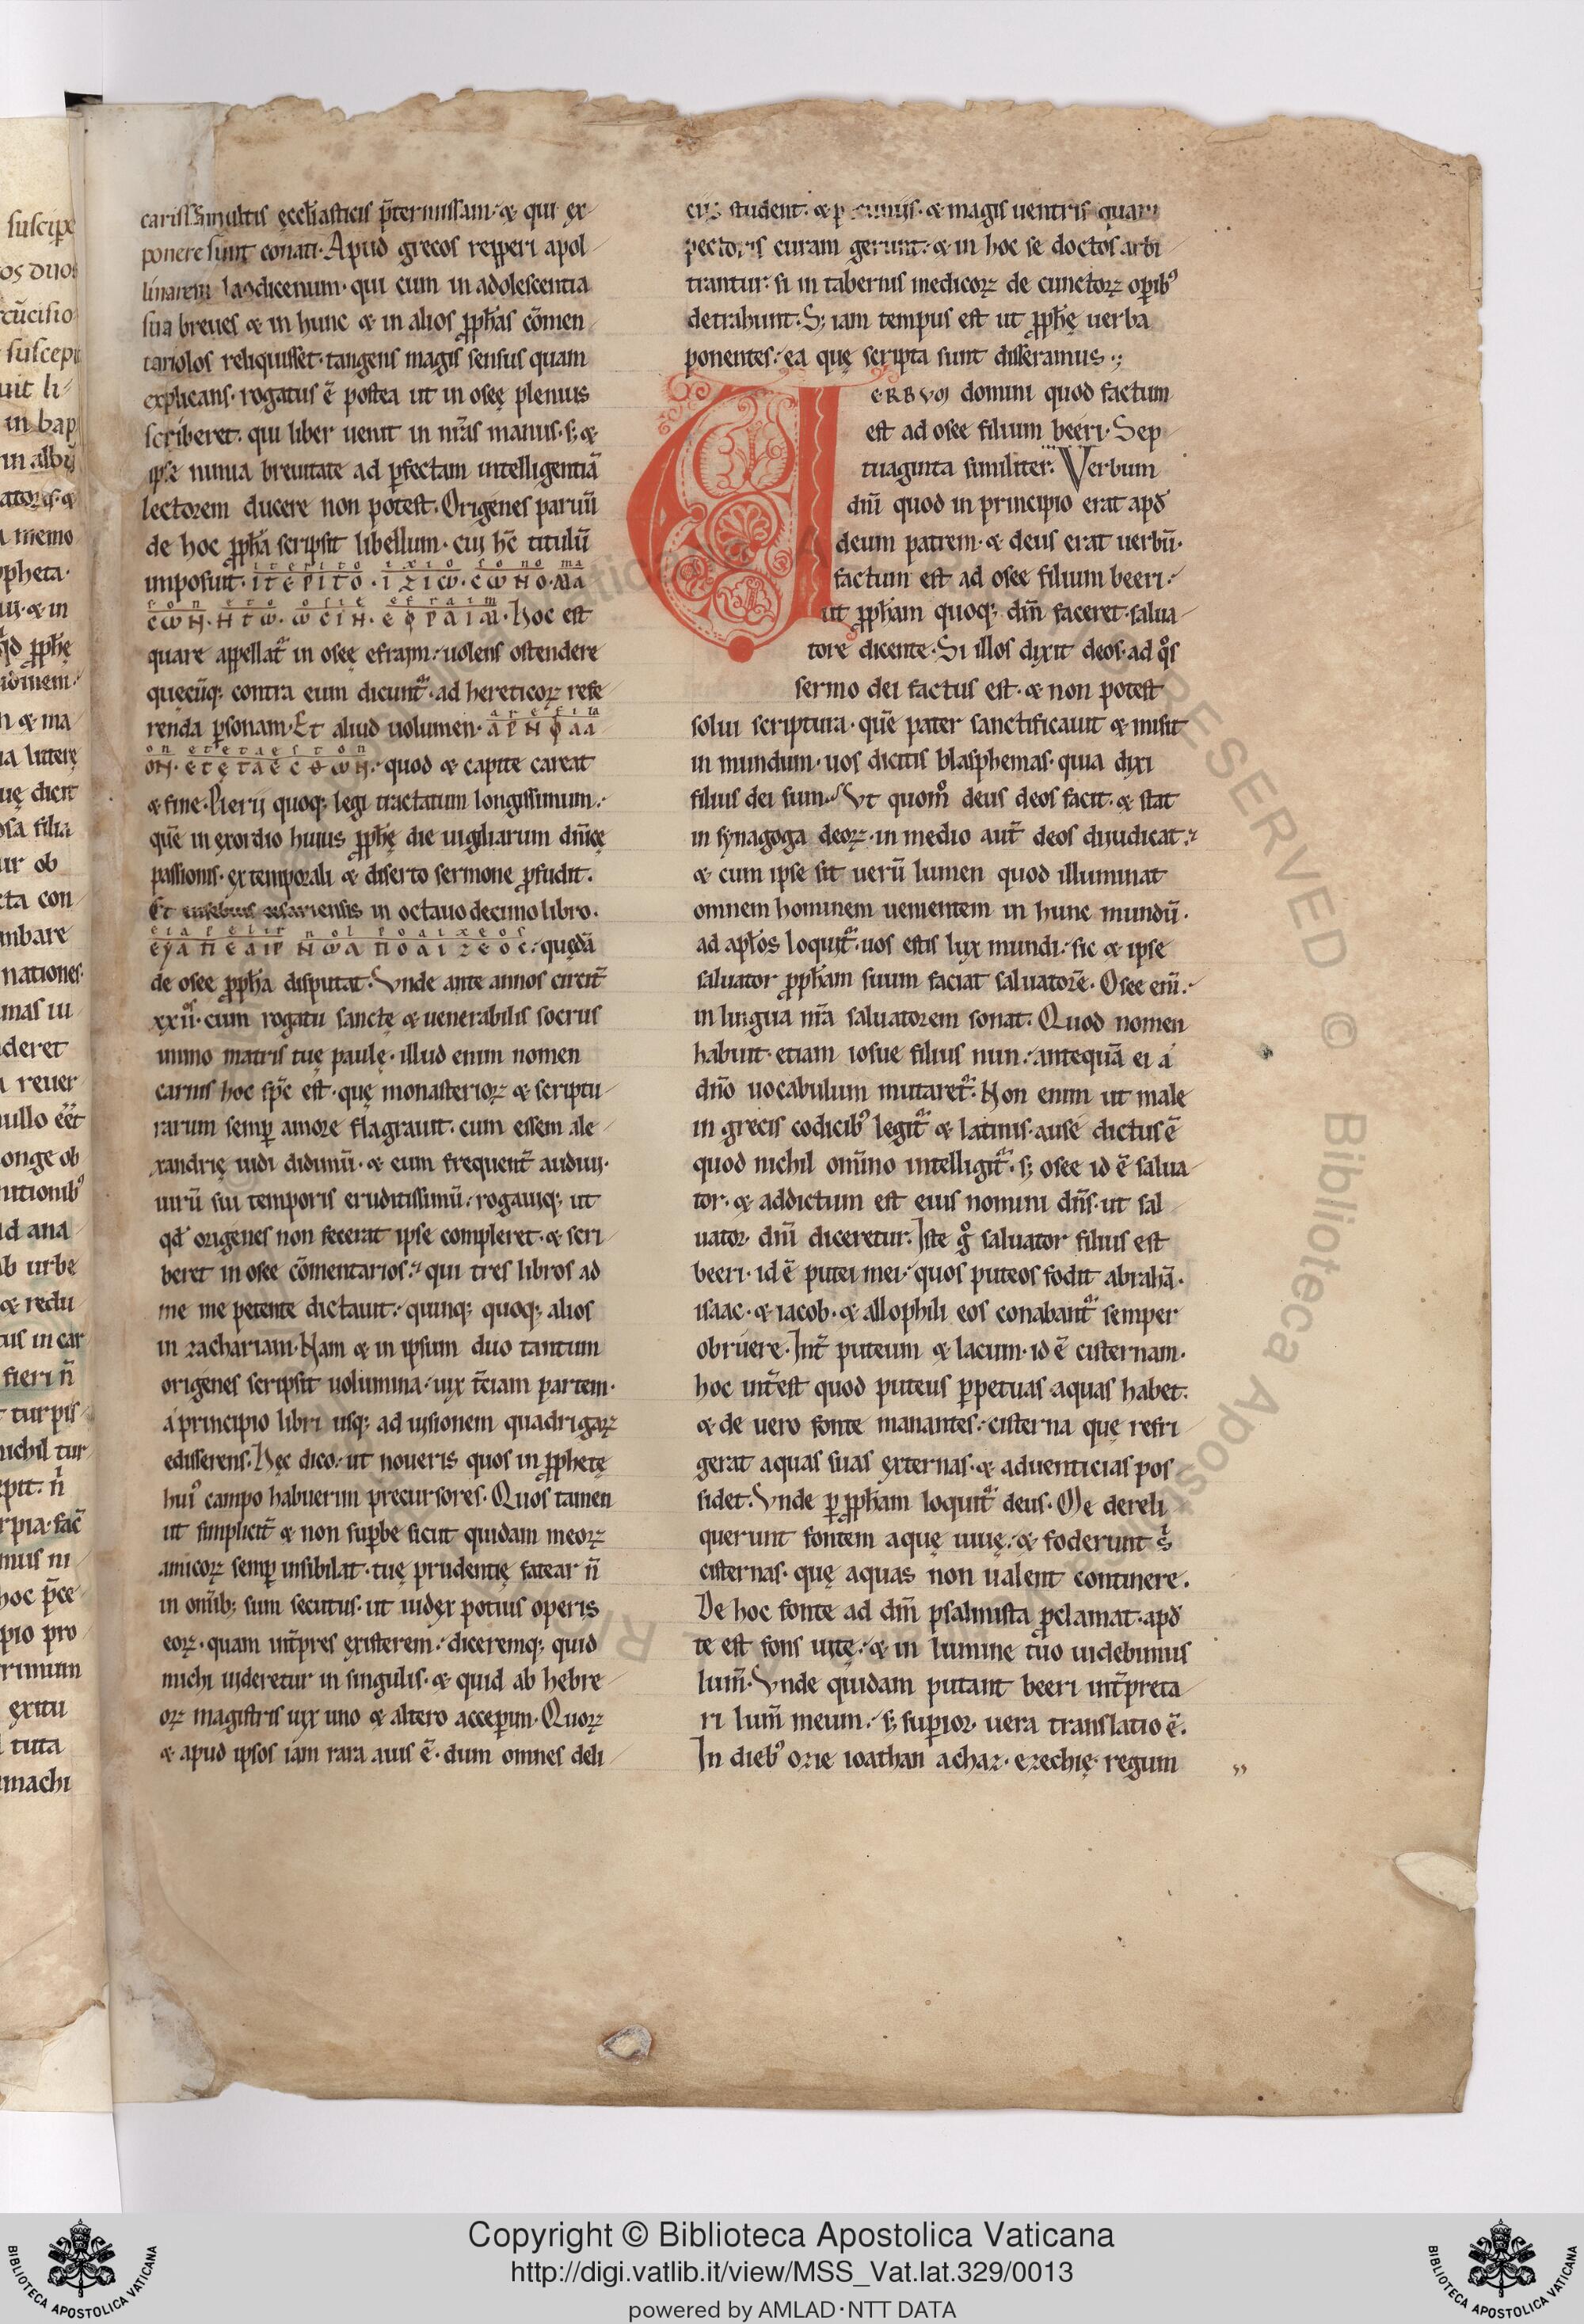 suscipe
os duos
cũcisio
suscepi
uit li
in bap
in albis
atores. &
a memo
pheta.
ui. & in
qd ꝓphę
nomem
n & ma
ia litterę
uę dicit
osa filia
ur ob
eta con
mbare
nationes.
mas iu
deret
a reuer
nullo eẽt
onge ob
nitionib᷒
id ana
ab urbe
& redu
tus in car
fieri ñ
turpis
nichil tur
epit. ñ
rpia. fac̃
mus ni
hoc p̃ce
pio pro
rrimum
exitu
tuta
machi
carissimultis ęccłiasticis p̃termissam. & qui ex
ponere sunt conati. Apud grecos repperi apol
linarem laodicenum. qui cum in adolescentia
sua breues & in hunc & in alios ꝓph̃as cõmen
tariolos reliquisset. tangens magis sensus quam
explicans. rogatus ẽ postea ut in oseę plenius
scriberet. qui liber uenit in nr̃as manus. s; &
ipse nimia breuitate ad ꝑfectam intelligentiã
lectorem ducere non potest. Origenes paruũ
de hoc ꝓph̃a scripsit libellum. cui hc̃ titulũ
iterito ixio sono ma
imposuit. ιτεριτο. ιζιω. cωνο. μα
son eto osie efraim
cων. ητω. ωcιη. εφραιμ. hoc est
quare appellat᷑ in oseę efraim. uolens ostendere
quęcũq; contra eum dicunt᷑. ad hereticoꝝ refe
renda ꝑsonam. Et aliud uolumen.
quod & capite careat
& fine. Pierij quoq; legi tractatum longissimum.
quẽ in exordio huius ꝓphę die uigiliarum dñicę
passionis. extemporali & diserto sermone ꝓfudit.
Et eusebius cesariensis in octauo decimo libro.
quędã
de osee ꝓph̃a disputat. Vnde ante annos circit̃
xxii᷒. cum rogatu sanctę & uenerabilis socrus
immo matris tuę paulę. illud enim nomen
carnis hoc sp̃c est. quę monasterioꝝ & scriptu
rarum semꝑ amore flagrauit. cum essem ale
xandrię uidi didimũ. & eum frequent̃ audiui.
uirũ sui temporis eruditissimũ. rogauiq; ut
qd̃ origenes non fecerat ipse compleret. & scri
beret in osee cõmentarios. qui tres libros ad
me me petente dictauit. quinq; quoq; alios
in zachariam. Nam & in ipsum duo tantum
origenes scripsit uolumina. uix t̃ciam partem.
a principio libri usq; ad uisionem quadrigaꝝ
edisserens. Hęc dico. ut noueris quos in ꝓphetę
hui᷒ campo habuerim precursores. Quos tamen
ut simplicit̃ & non supꝑbe sicut quidam meoꝝ
amicoꝝ semꝑ insibilat. tuę prudentię fatear ñ
in omib; sum secutus. ut iudex potius operis
eoꝝ. quam int̃pres existerem. diceremq; quid
michi uideretur in singulis. & quid ab hebre
oꝝ magistris uix uno & altero acceꝑim. Quoꝝ
& apud ipsos iam rara auis ẽ. dum omnes deli
student. & magis uentris quam
pectoris curam gerunt. & in hoc se doctos arbi
trantur. si in tabernis medicoꝝ de cunctoꝝ oꝑib᷒
detrahunt. S; iam tempus est ut ꝓphę uerba
ponentes. ea quę scripta sunt disseramus.
VERBVM domini quod factum
est ad osee filium beeri. Sep
tuaginta similiter. Verbum
dñi quod in principio erat apd̃
deum patrem. & deus erat uerbũ.
factum est ad osee filium beeri.
ut ꝓph̃am quoq; dñm faceret. salua
tore dicente. Si illos dixit deos. ad qᵒs
sermo dei factus est. & non potest
solui scriptura. quẽ pater sanctificauit & misit
in mundum. uos dicitis blasphemas. quia dixi
filius dei sum. Vt quomᵒ deus deos facit. & stat
in synagoga deoꝝ. in medio aut̃ deos diiudicat.
& cum ipse sit uerũ lumen quod illuminat
omnem hominem uenientem in hunc mundũ.
ad apłos loquit᷑. uos estis lux mundi. sic & ipse
saluator ꝓph̃am suum faciat saluatorẽ. Osee eni᷑.
in lingua nr̃a saluatorem sonat. Quod nomen
habuit. etiam iosue filius nun. antequã ei a
dño uocabulum mutaret᷑. Non enim ut male
in grecis codicib᷒ legit᷑ & latinis. ause dictus ẽ
quod nichil omĩno intelligit᷑. s; osee id ẽ salua
tor. & addictum est eius nomini dñs. ut sal
uator dñi diceretur. Iste gᵒ saluator filius est
beeri. id ẽ putei mei. quos puteos fodit abrahã.
isaac. & iacob. & allophili eos conabant᷑ semper
obruere. Int̃ puteum & lacum. id ẽ cisternam.
hoc int̃est quod puteus ꝑpetuas aquas habet.
& de uero fonte manantes. cisterna quę refri
gerat aquas suas externas. & aduenticias pos
sidet. Vnde ꝑ ꝓph̃am loquit᷑ deus. Me dereli
querunt fontem aquę uiuę. & foderunt sⁱ
cisternas. quę aquas non ualent continere.
De hoc fonte ad dñm psalmista ꝓclamat. apd̃
te est fons uitę. & in lumine tuo uidebimus
lum̃. Vnde quidam putant beeri int̃preta
ri lum̃ meum. s; suꝑior. uera translatio ẽ.
In dieb᷒ ozie ioathan achaz. ezechię regum
RESERVED © Biblioteca Apostolica
Copyright © Biblioteca Apostolica Vaticana
http://digi.vatlib.it/view/MSS_Vat.lat.329/0013
powered by AMLAD·NTT DATA
BIBLIOTECA APOSTOLICA VATICANA
BIBLIOTECA APOSTOLICA VATICANA